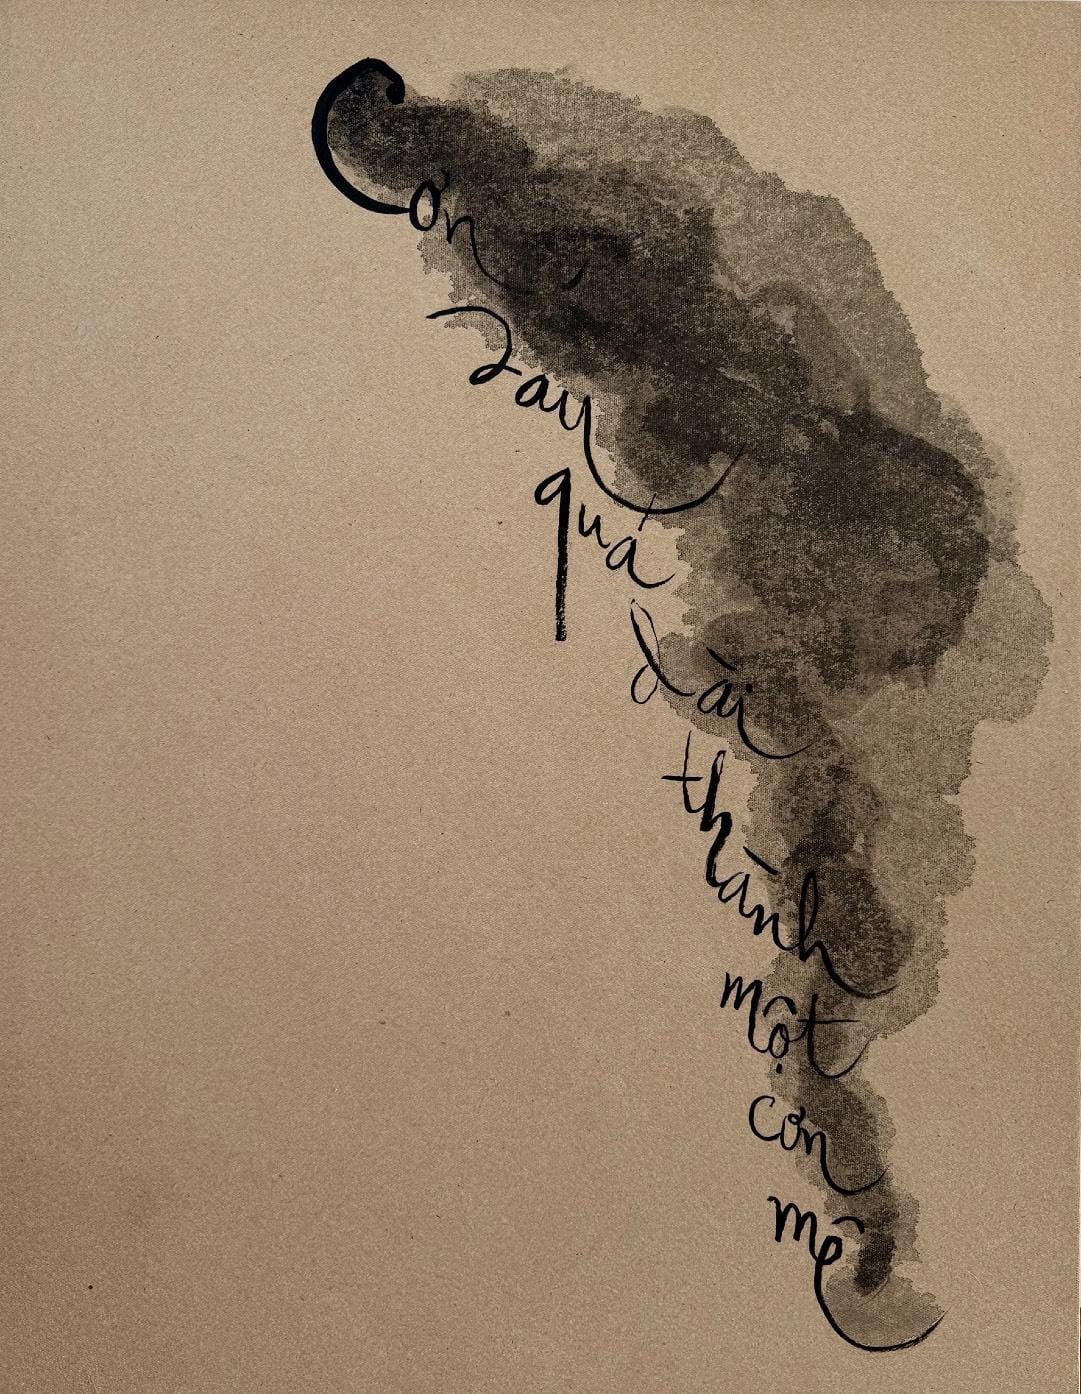 Cơn
say
quá
dài
thành
một
cơn
mê